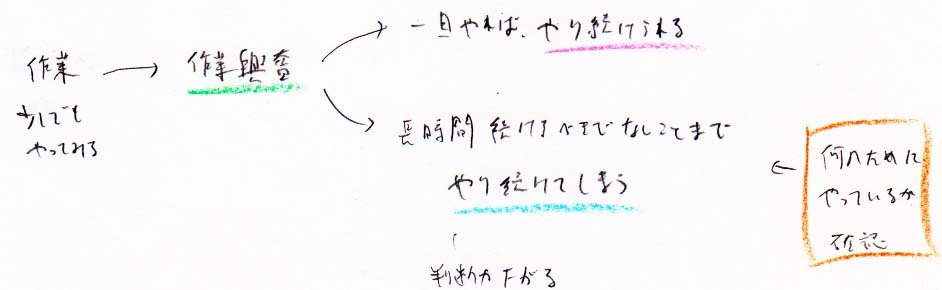 作業
少しでも
やってみる
作業興奮
一旦やれば、やり続けられる
長時間 続けるべきでないことまで
やり続けてしまう
判断力下がる
何のために
やっているか
確認